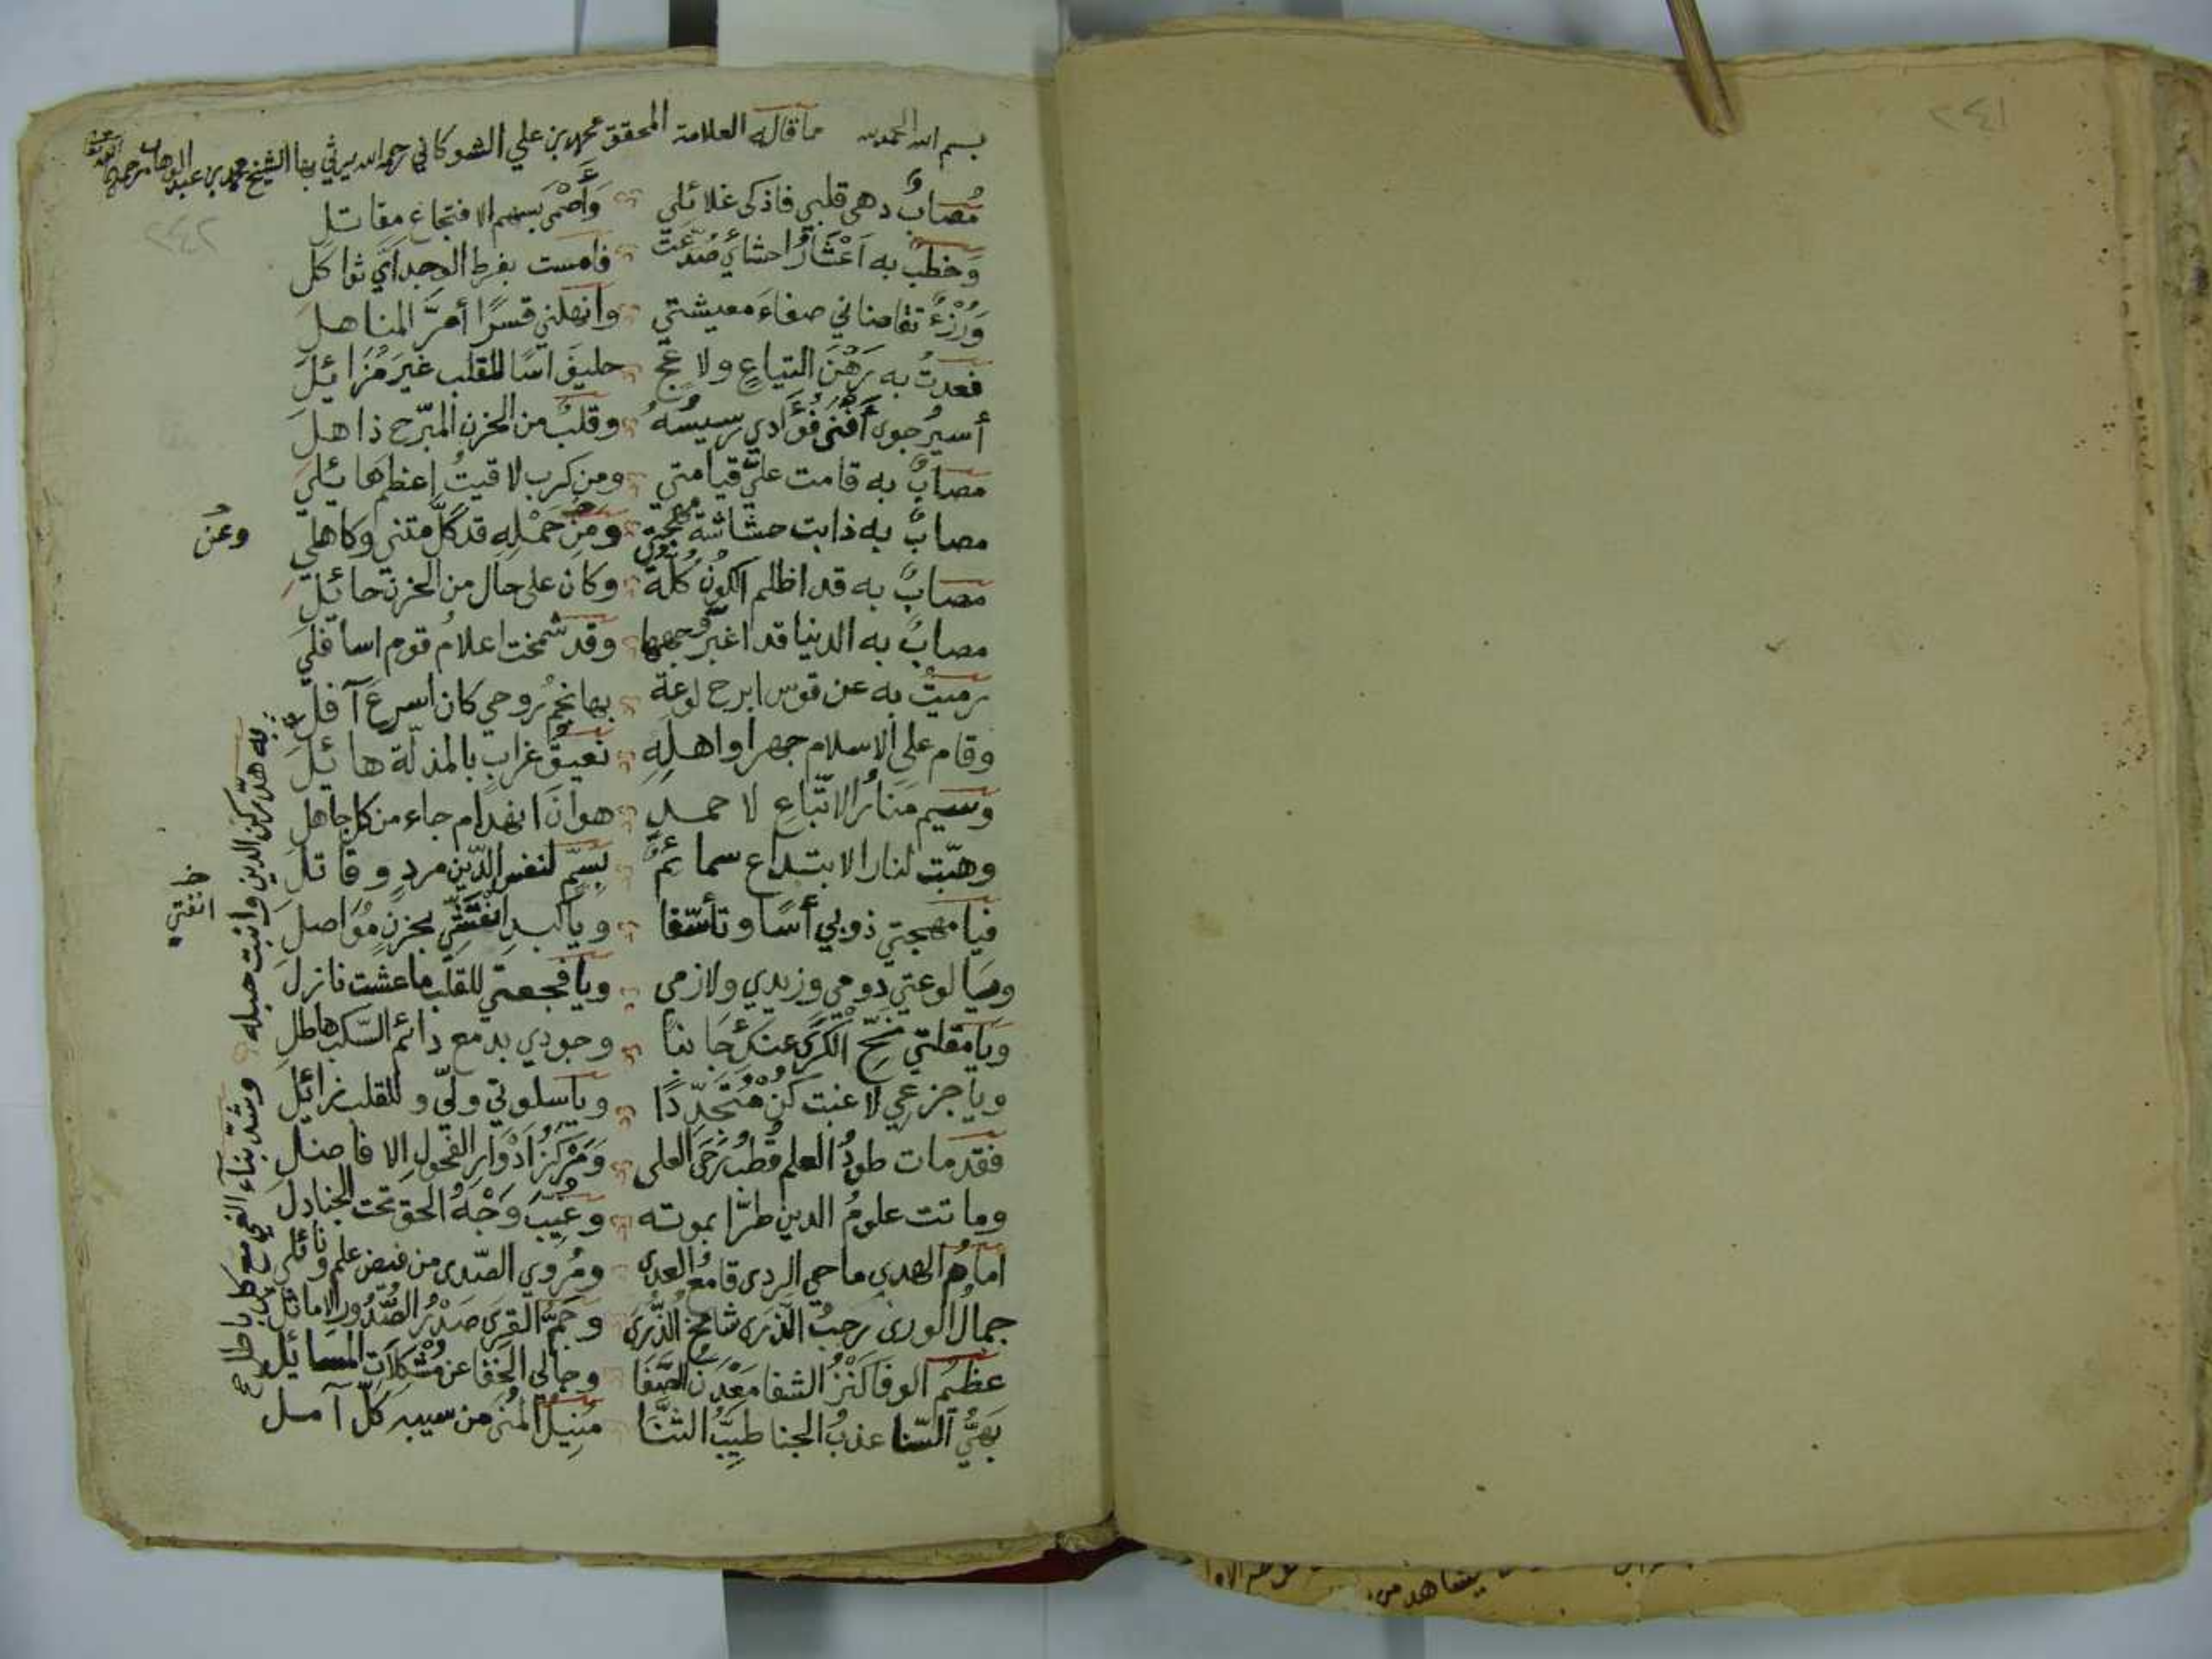 بسم الله الحمد لله مما قاله العلامة المحقق محمد بن علي الشوكاني رحمه الله يرثي بها الشيخ محمد بن عبد الوهاب رحمه
مُصابٌ دهى قلبي فاذكى غلائلي وَأَصْمَى بسهم الافتجاع مقاتل
وَخطبٌ به اَعْشَارُ احشائي صُدّعَت فامست بفرط الوجد أيّ ثواكل
وَرُزْءٌ تقاضاني صفاءَ معيشتي وانهلني قسرًا أمرَّ المناهل
فعدتُ به رَهْنَ التياعٍ ولاعجٍ حليفَ اسًا للقلب غيرَ مُزَائيل
أسيرُ جوى أَفْنى فُؤَادي رسيسُهُ وقلبٌ من الحزن المبّرح ذاهل
مصابٌ به قامت عليّ قيامتي ومن كرب لاقيتُ اعظم هائلي
مصابٌ به ذابت حشاشة مهجتي ومن حَمْلِهِ قد كَلَّ متني وكاهلي
وعَن
مصابٌ به قد اظلم الكونُ كلّه وكان على حال من الحزن حائيل
مصابٌ به الدنيا قد اغبّر وجهها وقد شمخت اعلامُ قوم اسافلي
رميتُ به عن قوس ابرح لوعة بها نجمُ روحي كان اسرعَ آفل
وقام على الاسلام جهرا واهلهِ نعيقُ غرابٍ بالمذلّة هائيل
وسيم مَنارُ الاتّباعِ لاحمدٍ هوانَ انهدام جاء من كل جاهل
وهبّت لنار الابتداع سمائمٌ بسمّ لنفس الدّين مردٍ وقاتل
فيا مهجتي ذوبي أسًا وتأسّفا ويا كبدِ انفتّتي بحزنٍ مُوَاصل
ويا لوعتي دومي وزيدي ولازمي ويا فجعتي للقلب ما عشت نازل
ويا مقلتي نحِّ الكرى عنكِ جانبا وجودي بدمع دائم السّكب هاطل
ويا جزعي لا غبت كن مُتَجدِّدًا ويا سلوتي ولّي وللقلب زائيل
فقد مات طودُ العلم قُطبُ رَحَى العلى وَمَرْكزُ اَدْوَارِ الفحولِ الافاضل
وماتت علومُ الدين طرًّا بموته وغُيّبَ وَجْهُ الحق تحت الجنادل
امامُ الهدى ماحي الردى قامعُ العدى ومُروي الصّدى من فيض علم ونائلي
جمالُ الورى رحبُ الذرى شامخُ الذُّرى وَجَمُّ القرى صَدْرُ الصُّدُور الاماثل
عظيم الوفا كَنْزُ الشفا مَعْدنُ الصَّفَا وجالي الخفا عن مُشْكلاتِ المسائيل
بَهيُّ السَّنا عذبُ الجنا طيّبُ الثنَّا مُنِيلُ المُنى من سيبه كلّ آمل
به هدّ ركن الدين وانبت حبله وشدّ بناء الغي مع كل باطل